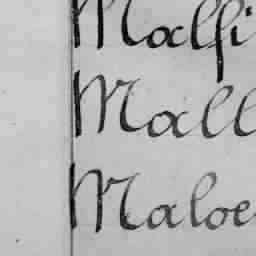 Malfi
Mall
Maloe